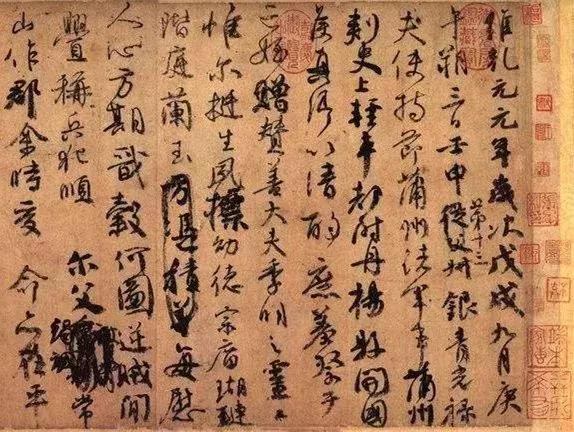 維乾元元年歲次戊戌九月庚
午朔三日壬申第十三叔銀青光祿
夫使持節蒲州諸軍事蒲州
刺史上輕車都尉丹楊縣開國
侯真卿以清酌庶羞祭于
亡姪贈贊善大夫季明之靈曰
惟爾挺生夙標幼德宗廟瑚璉
階庭蘭玉方憑積善每慰
人心方期戩穀何圖逆賊閒
釁稱兵犯順爾父竭誠常
山作郡余時受命亦在平